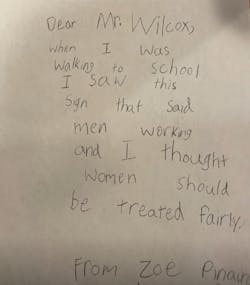 Dear Mr. Wilcox,
when I was
walking to school
I saw this
sign that said
men working
and I thought
women should
be treated fairly.
From Zoe